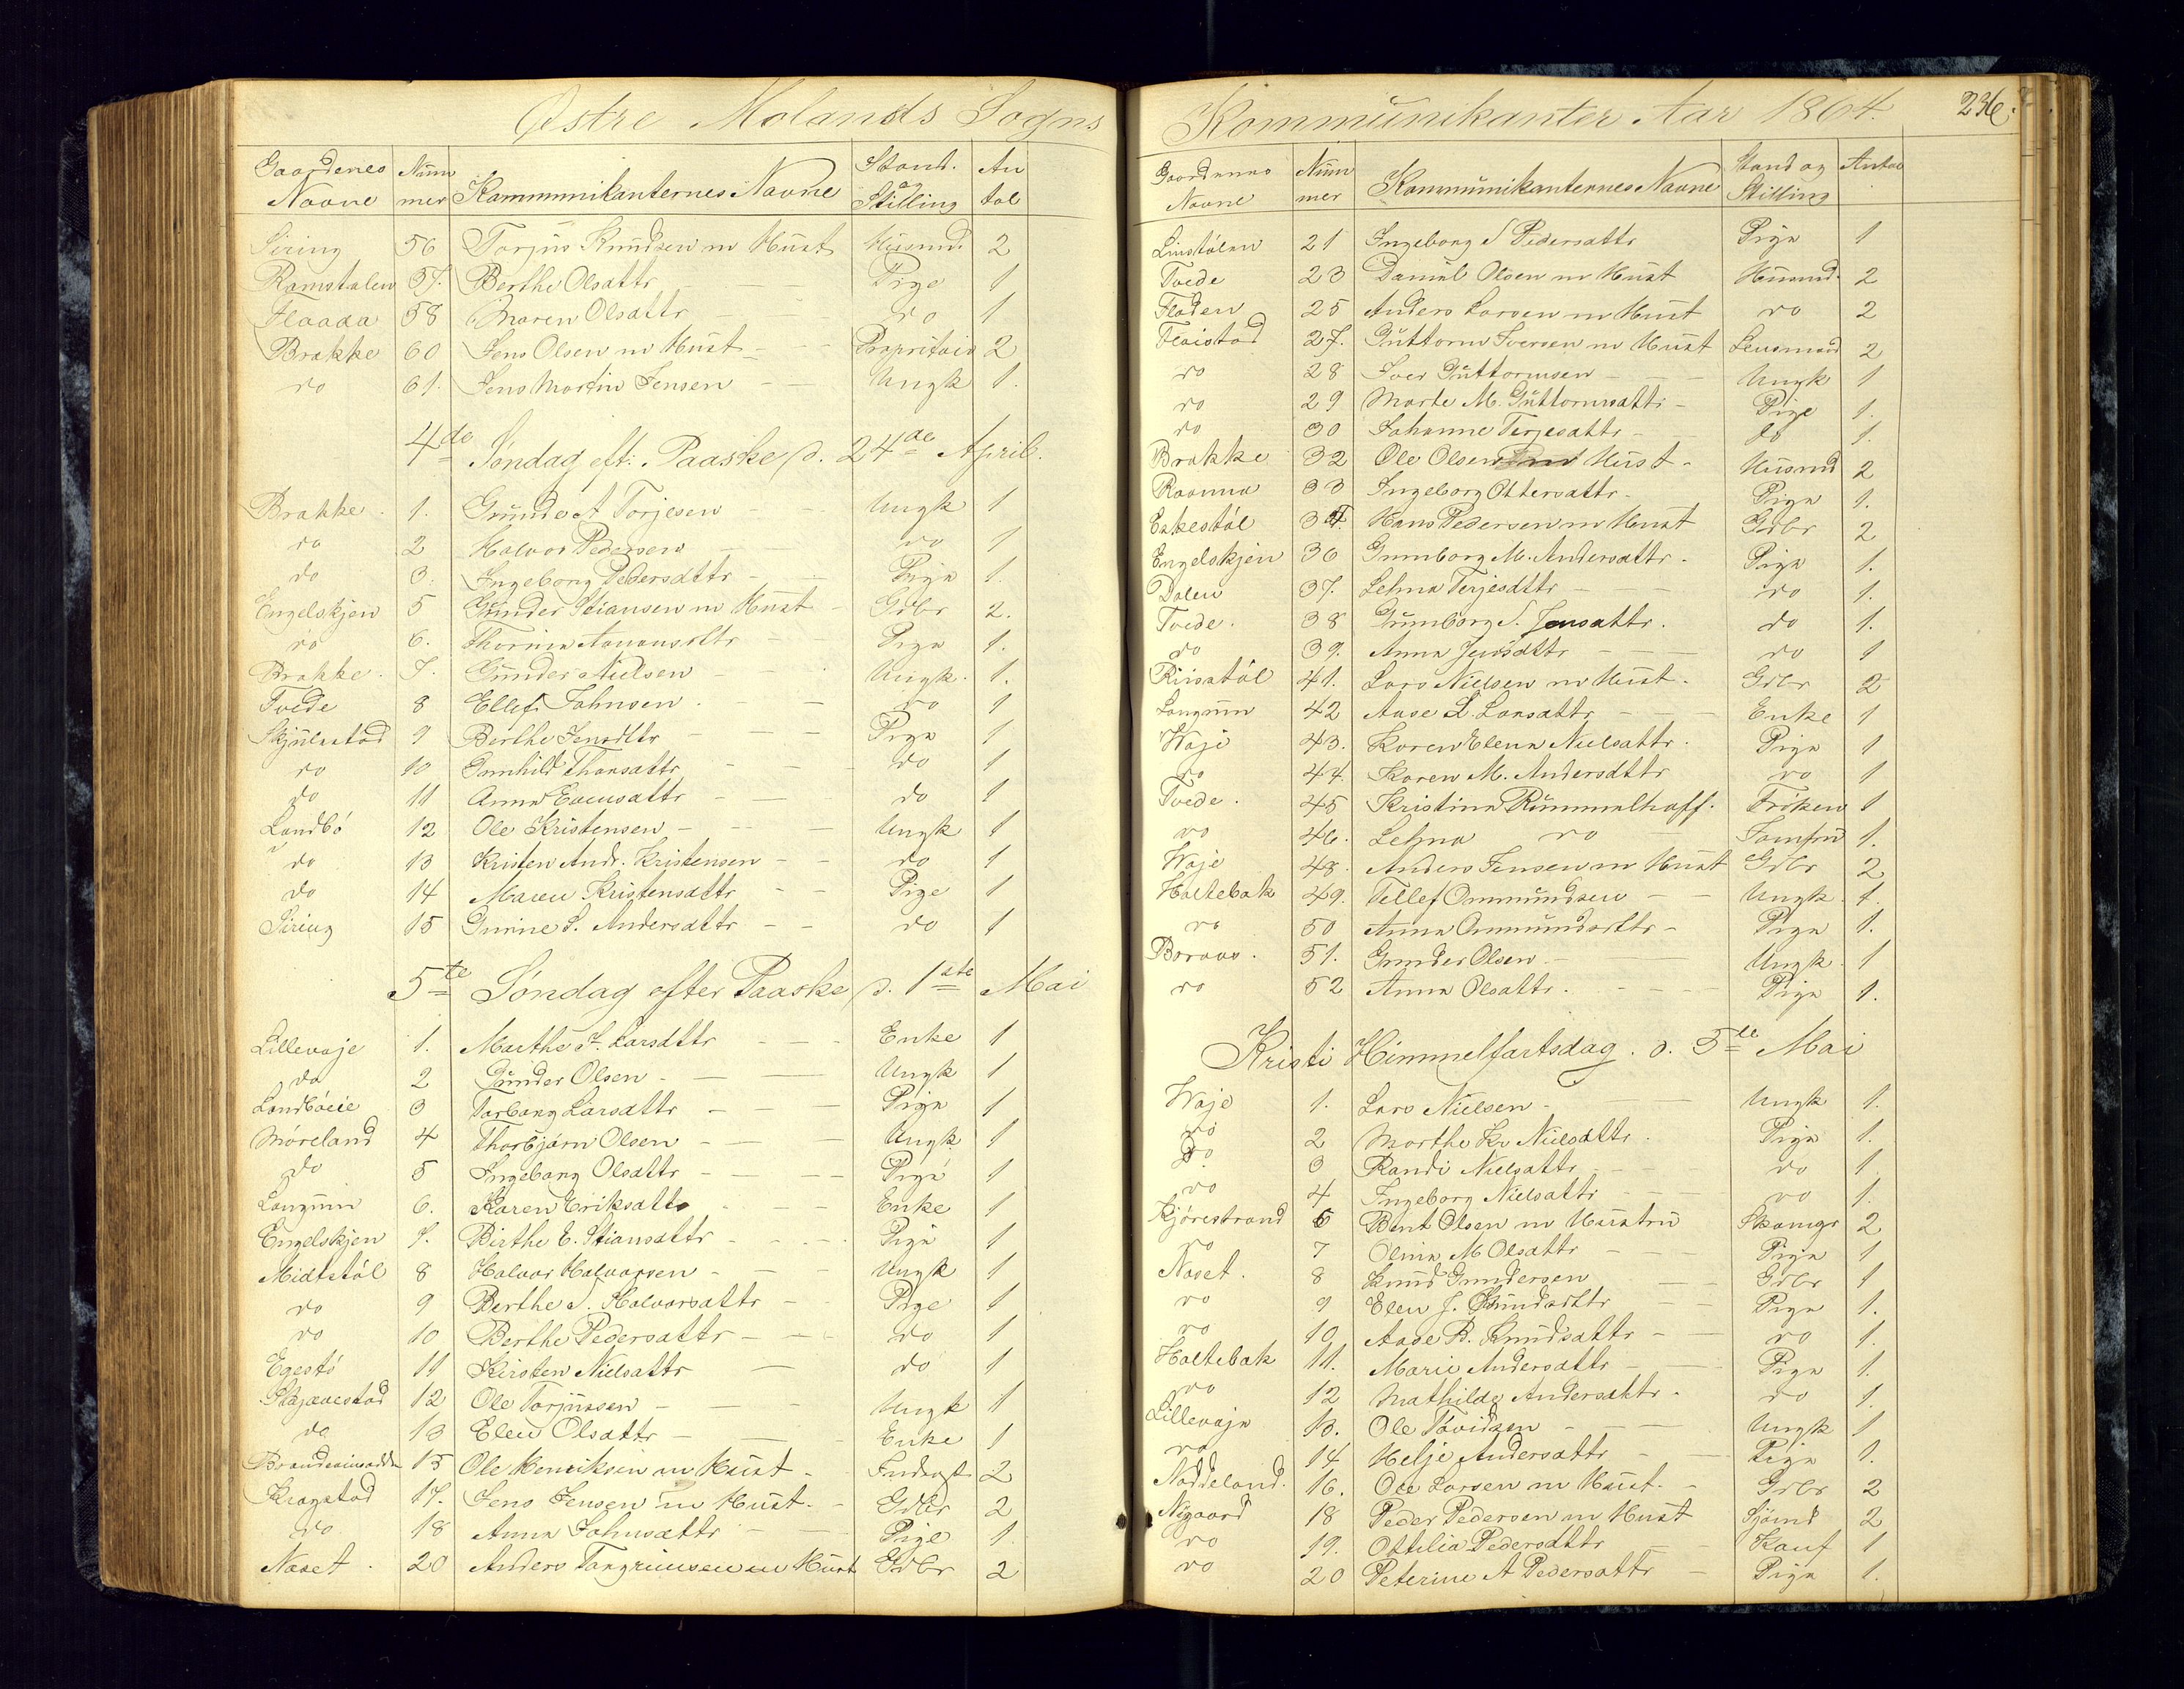 Østre Molands Sogns
Gaardenes Navne Nummer Kammunikanternes Navne Stand. og Stilling Antal
Siring 56 Torjus Knudsen m Hust Husmd. 2
Ramstalen 57. Berthe Olsattr Pige 1
Flaada 58 Maren Olsdattr do 1
Brække 60 Jens Olsen m Hust Propritair 2
do 61. Jens Martin Jensen Ungk 1.
4de Søndag eft: Paaske d. 24de April.
Brække 1. Gunder A Torjesen Ungk 1
do 2 Halvor Pedersen do 1
do 3. Ingeborg Pedersdttr Piga 1.
Engelskjen 5 Gunder Stiansen m Hust Grbr 2.
do 6. Thorina Aanonsdttr Piga 1.
Brække 7. Gunder Nielsen Ungk. 1.
Tvede 8 Ellef Johnsen do 1
Skjulestad 9 Berthe Jensdttr Piga 1
do 10 Gunhild Thorsattr do 1
do 11 Anna Evensattr do 1
Landbö 12 Ole Kristensen Ungk 1
do 13 Kristen Andr. Kristensen do 1
do 14 Maren Kristensattr Pige 1
Siring 15 Gurine S. Andersattr do 1
5te Søndag efter Paaske d. 1ste Mai
Lillevaje 1. Marthe T. Larsdttr Enke 1
do 2 Gunder Olsen Ungk 1
Landböeie 3 Torborg Larsdttr Piga 1
Möreland 4 Thorbjørn Olsen Ungk 1
do 5 Ingeborg Olsattr Piga 1
Langum 6. Karen Eriksatt Enke 1
Engelskjen 7. Birthe E. Stiansattr Piga 1
Midtstöl 8 Halvor Halvorsen Ungk 1
do 9 Berthe S. Halvorsattr Pige 1
do 10 Berthe Pedersattr do 1
Egestö 11 Kirsten Nielsattr do 1
Skjævestad 12 Ole Torjussen Ungk 1
do 13 Elen Olsattr Enke 1
15 Ole Henriksen m Hust Inderst 2
Kragstad 17. Jens Jensen m Hust. Grbr 2
do 18 Anna Johnsattr Pige 1
Næset 20 Anders Tangrimsen m Hust Grbr 2
Kommunikanter Aar 1864. 236.
Gaardenes Navne Nummer Kommunikanternes Navne Stand og Stilling Antal
Linstölen 21 Ingeborg S Pedersattr Piga 1
Tvede 23 Daniel Olsen m Hust Husmd. 2
Fladen 25 Anders Larsen m Hust do 2
Flaistad 27. Guttorm Iversen m Hust Lensmand 2
do 28 Iver Guttormsen Ungk 1
do 29 Marte M. Guttormsattr Pige 1.
do 30 Johanne Terjesattr do 1.
Brække 32 Ole Olsen m Hust Husmd 2
Raanna 33 Ingeborg Ottersattr Piga 1.
Eskestöl 35. Hans Pedersen m Hust Grbr 2
Engelskjen 36 Gunborg M. Andersattr. Piga 1.
Dalen 37. Lehna Terjesdttr do 1.
Tvede. 38 Gunborg S. Jensattr. do 1.
do 39. Anna Jensdttr do 1
Riisstöl 41. Lars Nielsen m Hust. Grbr 2
Langum 42 Aase L. Larsattr Enke 1
Waje 43. Karen Elena Nielsattr. Piga 1
do 44. Karen M. Andersdttr do 1
Tvede. 45 Kristina Rummelhoff. Fröken 1
do 46. Lehna do Jomfru 1.
Waje 48. Anders Jensen m Hust Grbr 2
Holtebak 49. Tellef Ommundsen Ungk 1.
do 50 Anna Ommundsdttr Piga 1.
Boraas. 51. Gunder Olsen Ungk. 1
do 52 Anna Olsattr. Piga 1.
Kristi Himmelfartsdag. d. 5te Mai
Waje 1. Lars Nielsen Ungk 1.
do 2 Marthe Kr Nielsdttr. Piga 1.
do 3 Randi Nielsattr do 1
do 4 Ingeborg Nielsattr do 1.
Kjörestrand 6 Bent Olsen m Hustru Skomgr 2
do 7 Olina M Olsattr Piga 1
Næset. 8 Knud Gundersen Grbr 1
do 9 Elen J. Knudsdttr Piga 1.
do 10 Aase B. Knudsattr do 1.
Holtebak 11. Marie Andersattr Piga 1.
do 12 Mathilde Andersattr. do 1.
Lillevaja 13. Ole Tövidsen Ungk 1
do 14 Helje Andersattr Piga 1.
Naddeland. 16. Ole Larsen m Hust. Grbr 2
Nygaard 18 Peder Pedersen m Hust Sjömd 2
do 19. Ottilia Pedersdttr Konf 1
do 20 Peterine A Pedersattr Piga 1.